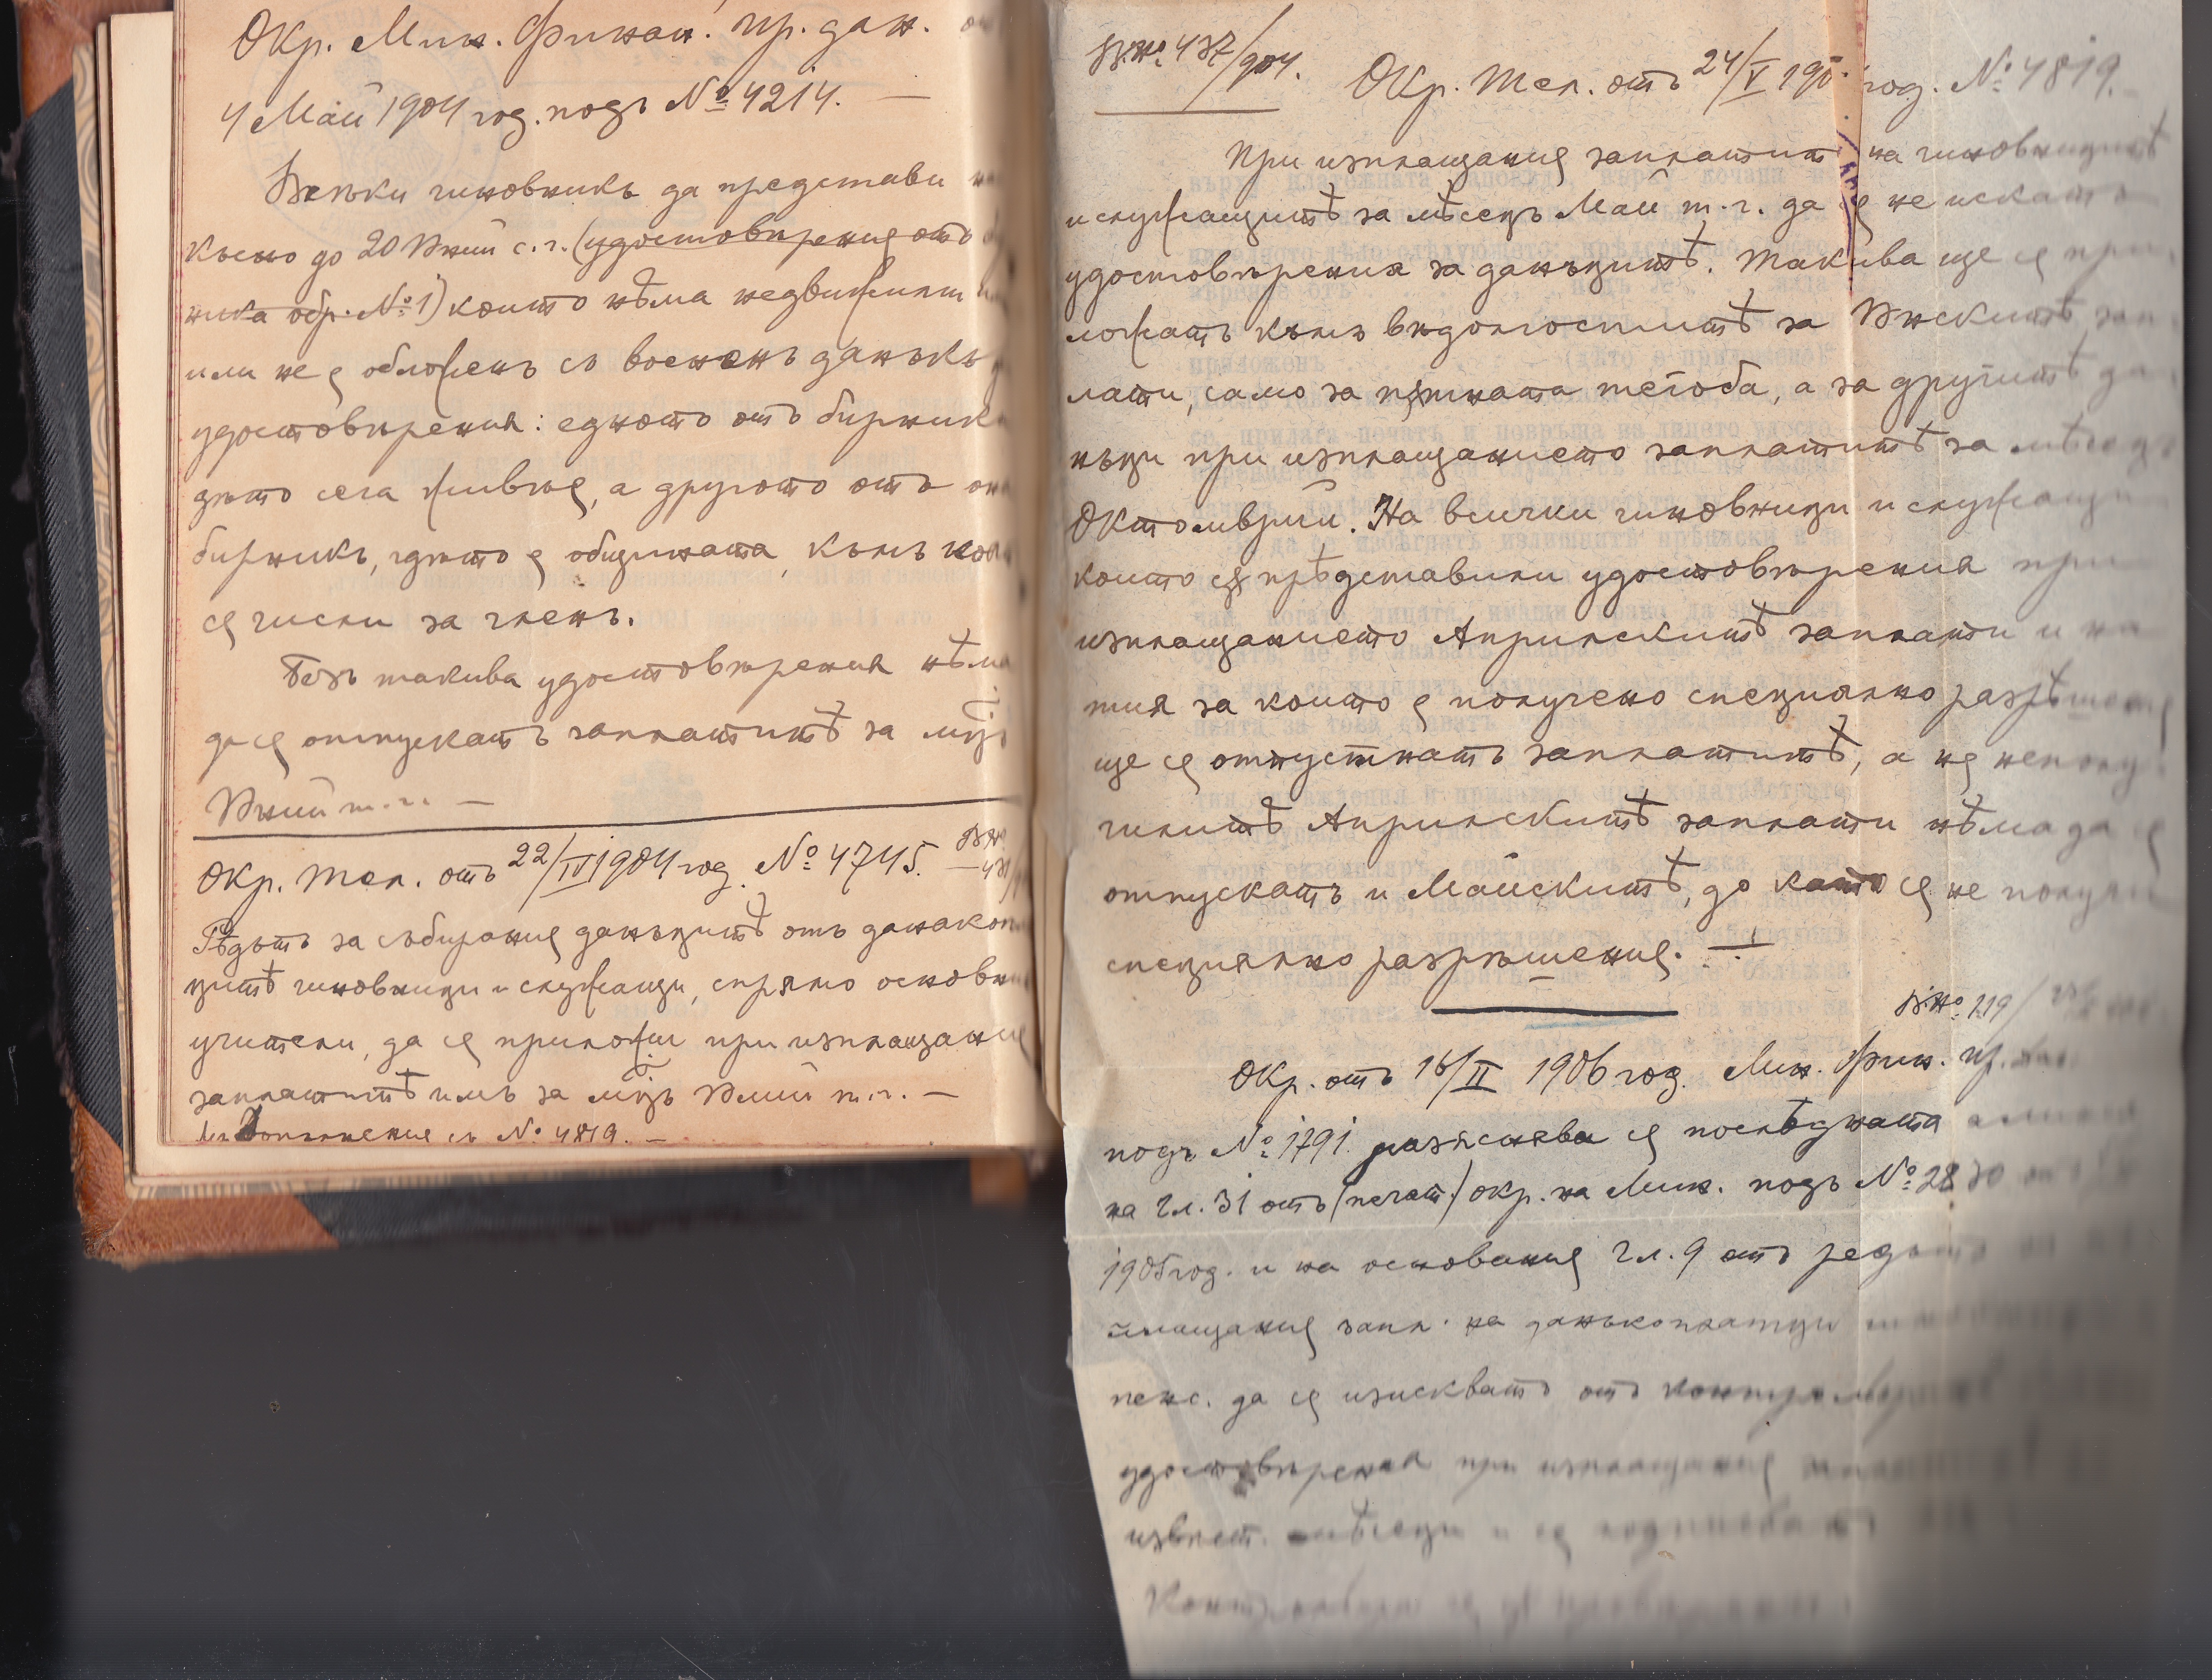 Окр. Мин. Финан. пр. дан.
4 Май 1904 год. подъ № 4214. —
Всѣки чиновникъ да представи
късно до 20 Юний с. г. (удостовѣрения отъ
ника обр. № 1) които нѣма недвижим
или не е обложенъ съ воененъ данъкъ
удостовѣрения: едното отъ бирника
дѣто сега живѣе, а другото отъ
бирникъ, гдѣто е общината, къмъ
се числи за членъ.
Безъ такива удостовѣрения нѣма
да се отпускатъ заплатитѣ за м-цъ
Юний т. г. —
Окр. Тел. отъ 22/IV 1904 год. № 4745.
Рѣдътъ за събирание данъцитѣ отъ данакоп
цитѣ чиновници и служащи, спрямо основни
учители, да се приложи при изплащание
заплатитѣ имъ за м-цъ Юлий т. г. —
допълнение съ № 4819. —
В.№ 437/904.
Окр. Тел. отъ 24/V 190 год. № 4819. —
При изплащание заплатитѣ на чиновницитѣ
и служащитѣ за мѣсецъ Май т. г. да се не искатъ
удостовѣрения за данъцитѣ. Такива ще се при
ложатъ къмъ вѣдомоститѣ за Юнскитѣ зап
лати, само за пѫтната тегоба, а за другитѣ да
нъци при изплащанието заплатитѣ за мѣсецъ
Октомврий. На всички чиновници и служащи
които сѫ прѣдставили удостовѣрения при
изплащанието Априлскитѣ заплати и на
тия за които е получено специално разрѣшение
ще се отпустнатъ заплатитѣ, а на неполу
чилитѣ Априлскитѣ заплати нѣма да се
отпускатъ и Майскитѣ, до като се не получи
специялно разрѣшение. —
В.№ 119/
Окр. отъ 16/II 1906 год. Мин. Фин. пр.
подъ № 1791. разяснява се послѣдната алинея
на чл. 31 отъ (печат.) окр. на Мин. подъ № 2830
1905 год. и на основание чл. 9 отъ редътъ
плащание запл. на данъкоплатци
пенс. да се изискватъ отъ
удостовѣрения при изплащание
извест. мѣсеци и се